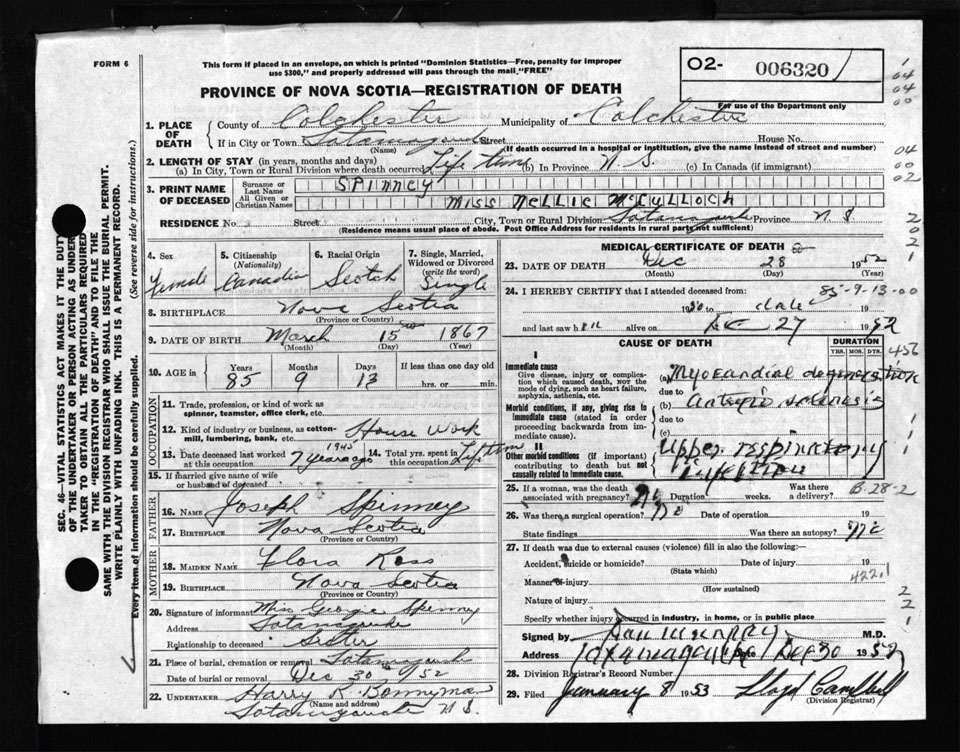 FORM 6
This form if placed in an envelope, on which is printed "Dominion Statistics—Free, penalty for improper
use $300," and properly addressed will pass through the mail "FREE"
O2- 006320
For use of the Department only
PROVINCE OF NOVA SCOTIA—REGISTRATION OF DEATH
1. PLACE OF DEATH { County of Colchester Municipality of Colchester
If in City or Town Tatamagouche Street House No.
(Name) (If death occurred in a hospital or institution, give the name instead of street and number)
2. LENGTH OF STAY (in years, months and days)
(a) In City, Town or Rural Division where death occurred Life time (b) in Province N. S. (c) in Canada (if immigrant)
3. PRINT NAME OF DECEASED { Surname or Last Name SPINNEY
All Given or Christian Names Miss Nellie McCulloch
RESIDENCE No. Street City, Town or Rural Division Tatamagouche Province N S.
(Residence means usual place of abode. Post Office Address for residents in rural parts not sufficient)
4. Sex Female
5. Citizenship (Nationality) Canadian
6. Racial Origin Scotch
7. Single, Married, Widowed or Divorced (write the word) Single
8. BIRTHPLACE Nova Scotia
(Province or Country)
9. DATE OF BIRTH March 15 1867
(Month) (Day) (Year)
10. AGE in { Years 85 Months 9 Days 13 If less than one day old
hrs. or min.
OCCUPATION
11. Trade, profession, or kind of work as
spinner, teamster, office clerk, etc.
12. Kind of industry or business, as cotton-
mill, lumbering, bank, etc. House Work
13. Date deceased last worked at this occupation 1945 7 years ago
14. Total yrs. spent in this occupation Life time
15. If married give name of wife
or husband of deceased
FATHER
16. Name Joseph Spinney
17. Birthplace Nova Scotia
(Province or Country)
MOTHER
18. Maiden Name Flora Ross
19. Birthplace Nova Scotia
(Province or Country)
20. Signature of informant Miss Georgie Spinney
Address Tatamagouche
Relationship to deceased Sister
21. Place of burial, cremation or removal Tatamagouche
Date of burial or removal Dec 30 / 52
22. UNDERTAKER Harry R. Bonnyman
(Name and address)
Tatamagouche N S.
MEDICAL CERTIFICATE OF DEATH
23. DATE OF DEATH Dec 28 1952
(Month) (Day) (Year)
24. I HEREBY CERTIFY that I attended deceased from: 85-9-13-00
1950 to date 19
and last saw her alive on Dec 27 1952
CAUSE OF DEATH
DURATION
YRS. MOS. DYS.
456
I
Immediate cause
Give disease, injury or complica-
tion which caused death, not the
mode of dying, such as heart failure,
asphyxia, asthenia, etc.
(a) Myocardial degeneration
due to
Morbid conditions, if any, giving rise to
immediate cause (stated in order
proceeding backwards from im-
mediate cause).
(b) arterio sclerosis
due to
(c)
II
Other morbid conditions (if important)
contributing to death but not
causally related to immediate cause.
Upper respiratory
infection
25. If a woman, was the death associated with pregnancy? No Duration weeks. Was there a delivery?
B-28-2
26. Was there a surgical operation? No Date of operation 19
State findings Was there an autopsy? No
27. If death was due to external causes (violence) fill in also the following:—
Accident, suicide or homicide? Date of injury 19
(State which)
422.1
Manner of injury
(How sustained)
Nature of injury
Specify whether injury occurred in industry, in home, or in public place
Signed by Dan Murray M.D.
Address Tatamagouche Date Dec 30 1952
28. Division Registrar's Record Number
29. Filed January 8 1953 Lloyd Campbell
(Division Registrar)
SEC. 46—VITAL STATISTICS ACT MAKES IT THE DUTY
OF THE UNDERTAKER OR PERSON ACTING AS UNDER-
TAKER TO OBTAIN ALL THE PARTICULARS REQUIRED
IN THE "REGISTRATION OF DEATH" AND TO FILE THE
SAME WITH THE DIVISION REGISTRAR WHO SHALL ISSUE THE BURIAL PERMIT.
WRITE PLAINLY WITH UNFADING INK. THIS IS A PERMANENT RECORD.
Every item of information should be carefully supplied. (See reverse side for instructions.)
1
04
04
00
04
00
02
2
02
2
1
1
1
1
2
2
1